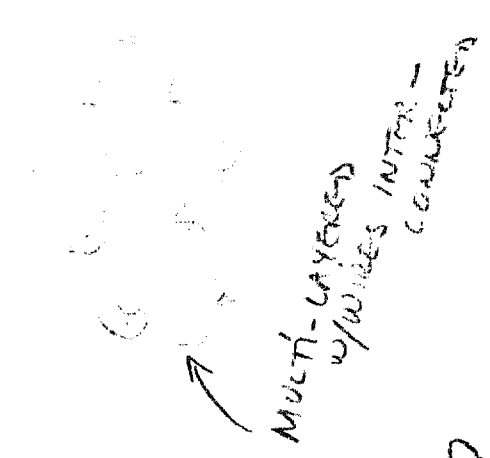 MULTI-LAYERED
W/WIRES INTER-
CONNECTED